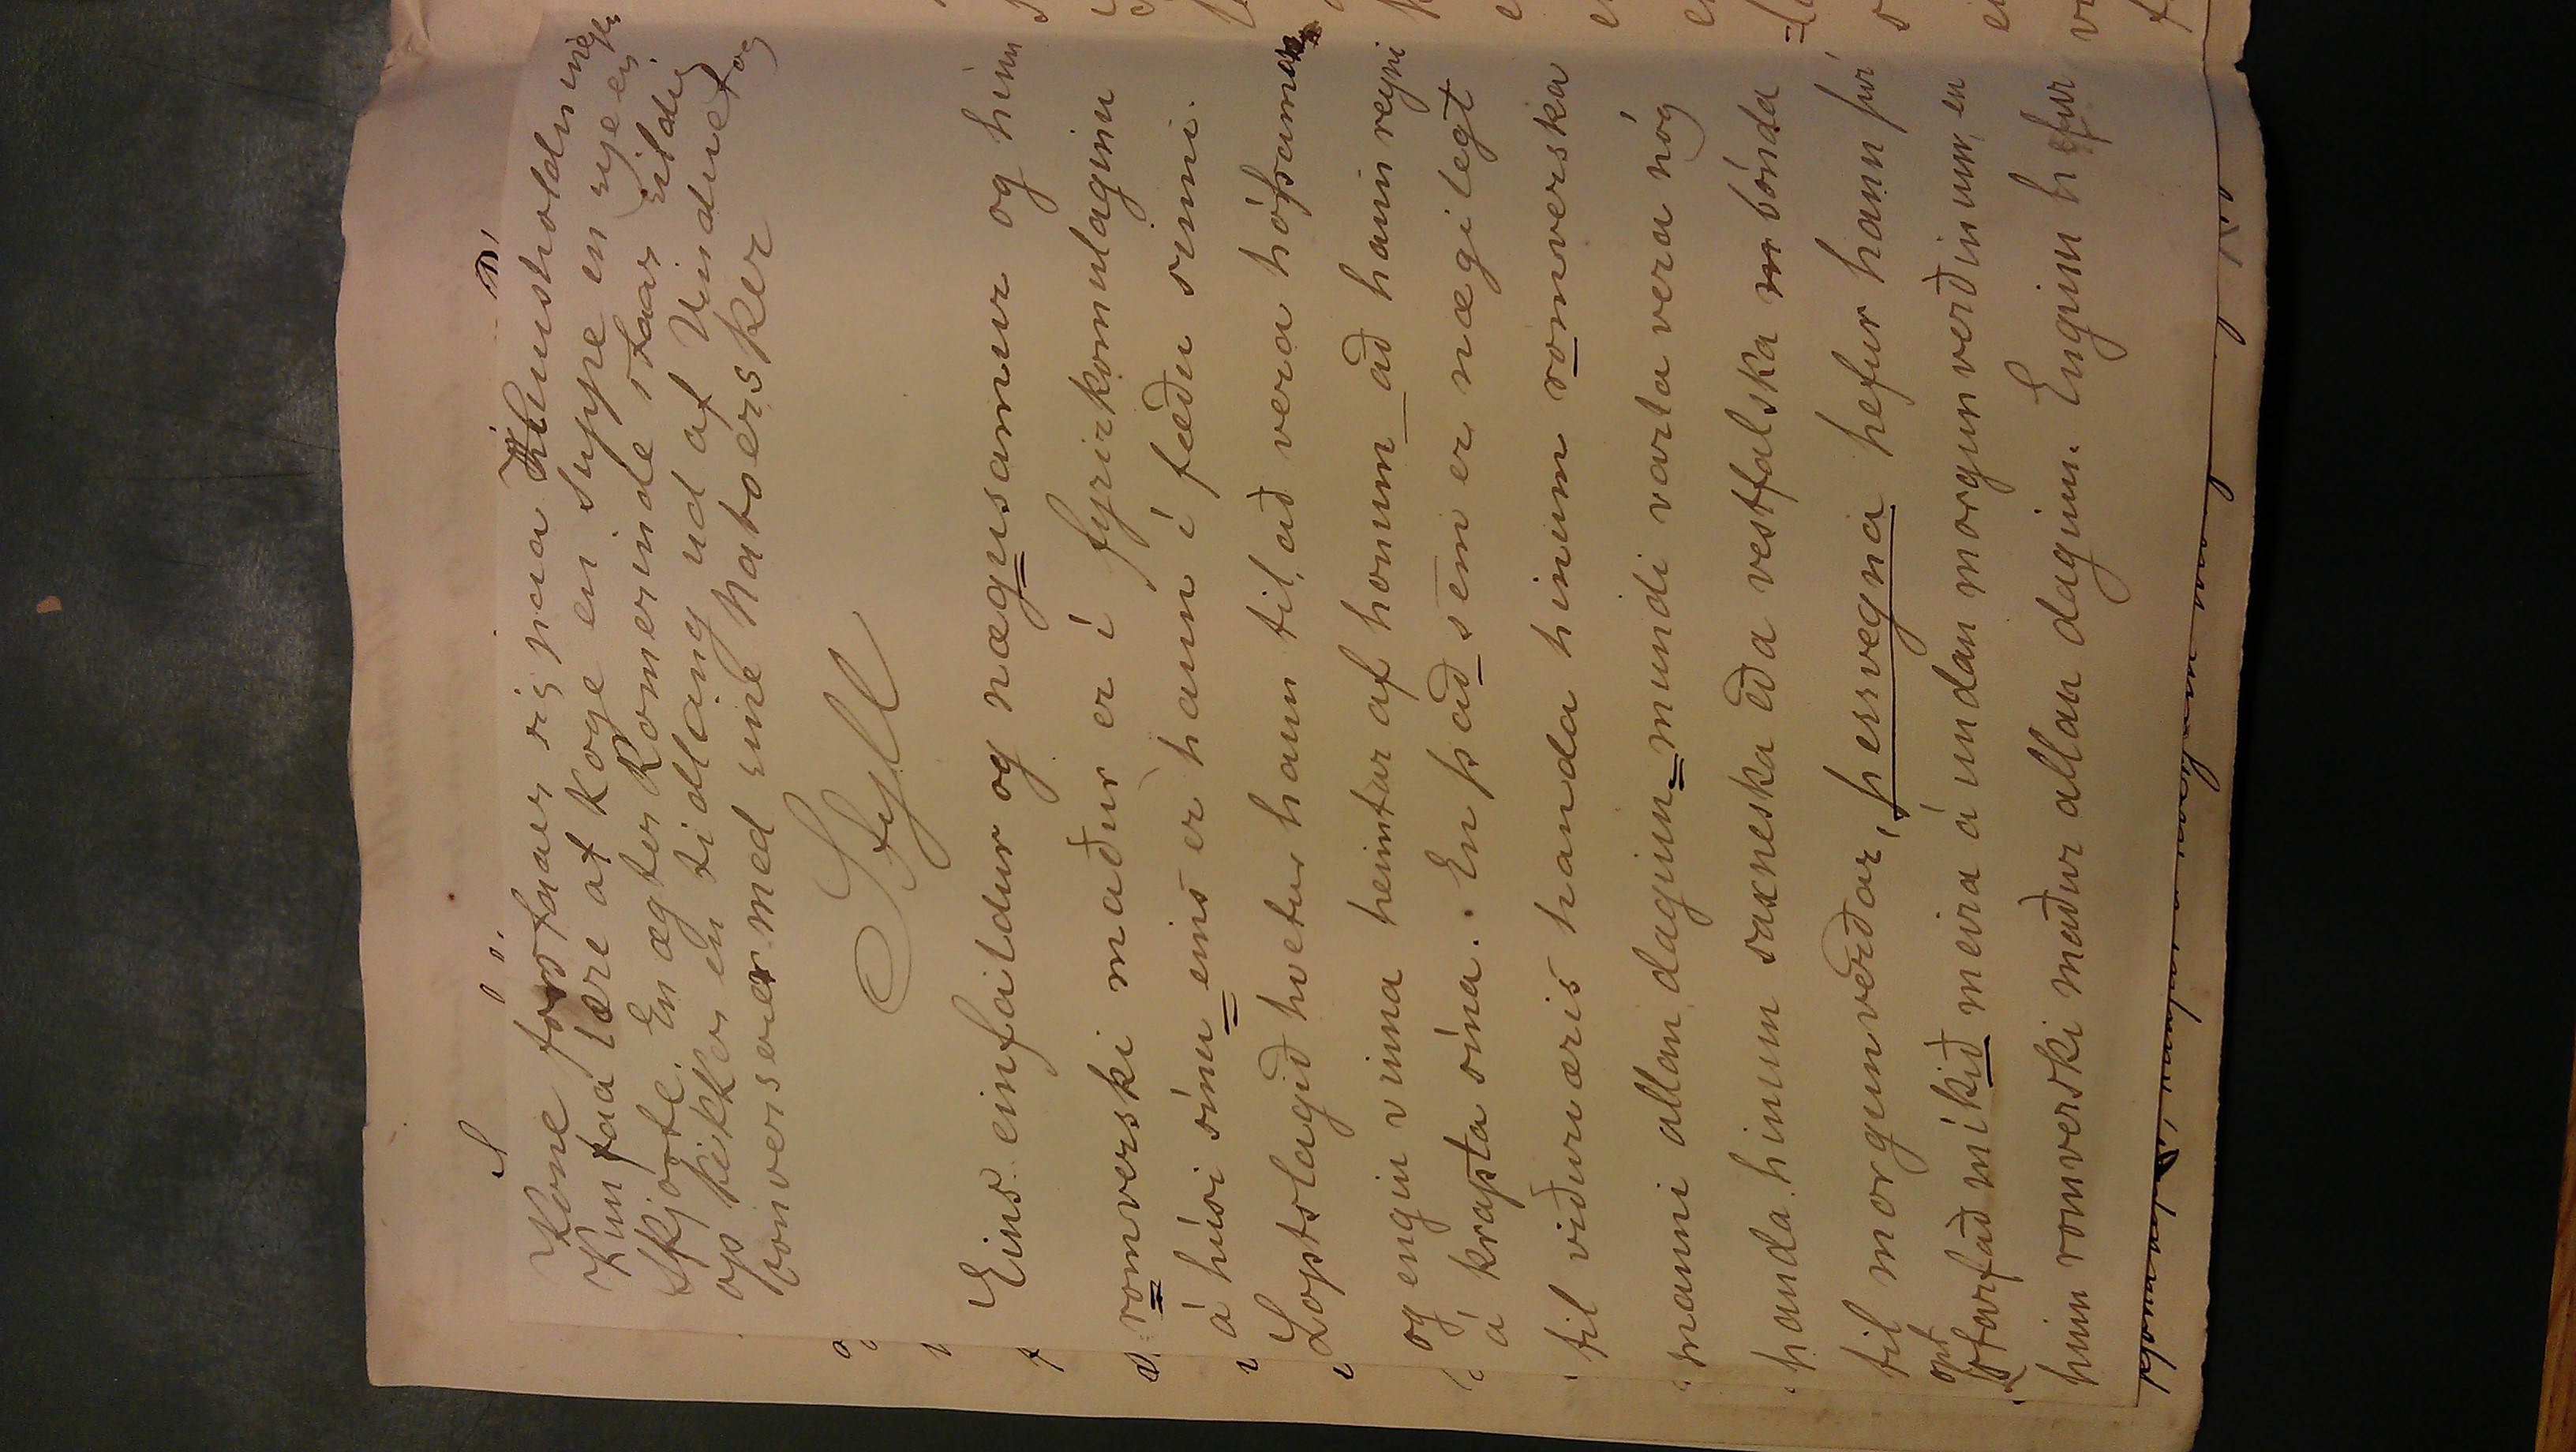 Kone forstaaer sig paa Huusholdninger
Kun faa lære at koge en suppe en syeen
Skjorte. En ægter Romerinde staar sildig
op kikker en tidlang ud af Vinduet og
converserer med sine Naboersker
Styll
Eins einfaldur og nægusamur og hinn
romverski maður er í fyrirkomulaginu
á húsi sínu eins er hann í fæðu sinni.
Loptslagið hvetur hann til að vera hófsaman
og engin vinna heimtar af honum að hann reyni
á krapta sína. En það sem er nægilegt
til viðuræris handa hinum romverska
manni allan daginn mundi varla vera nóg
handa hinum saxneska eða vestfalska bónda
til morgunverðar, þessvegna hefur hann því
opt
starfað mikið meira á undan morgunverðinum en
hinn romverski maður allan daginn. Enginn hefur